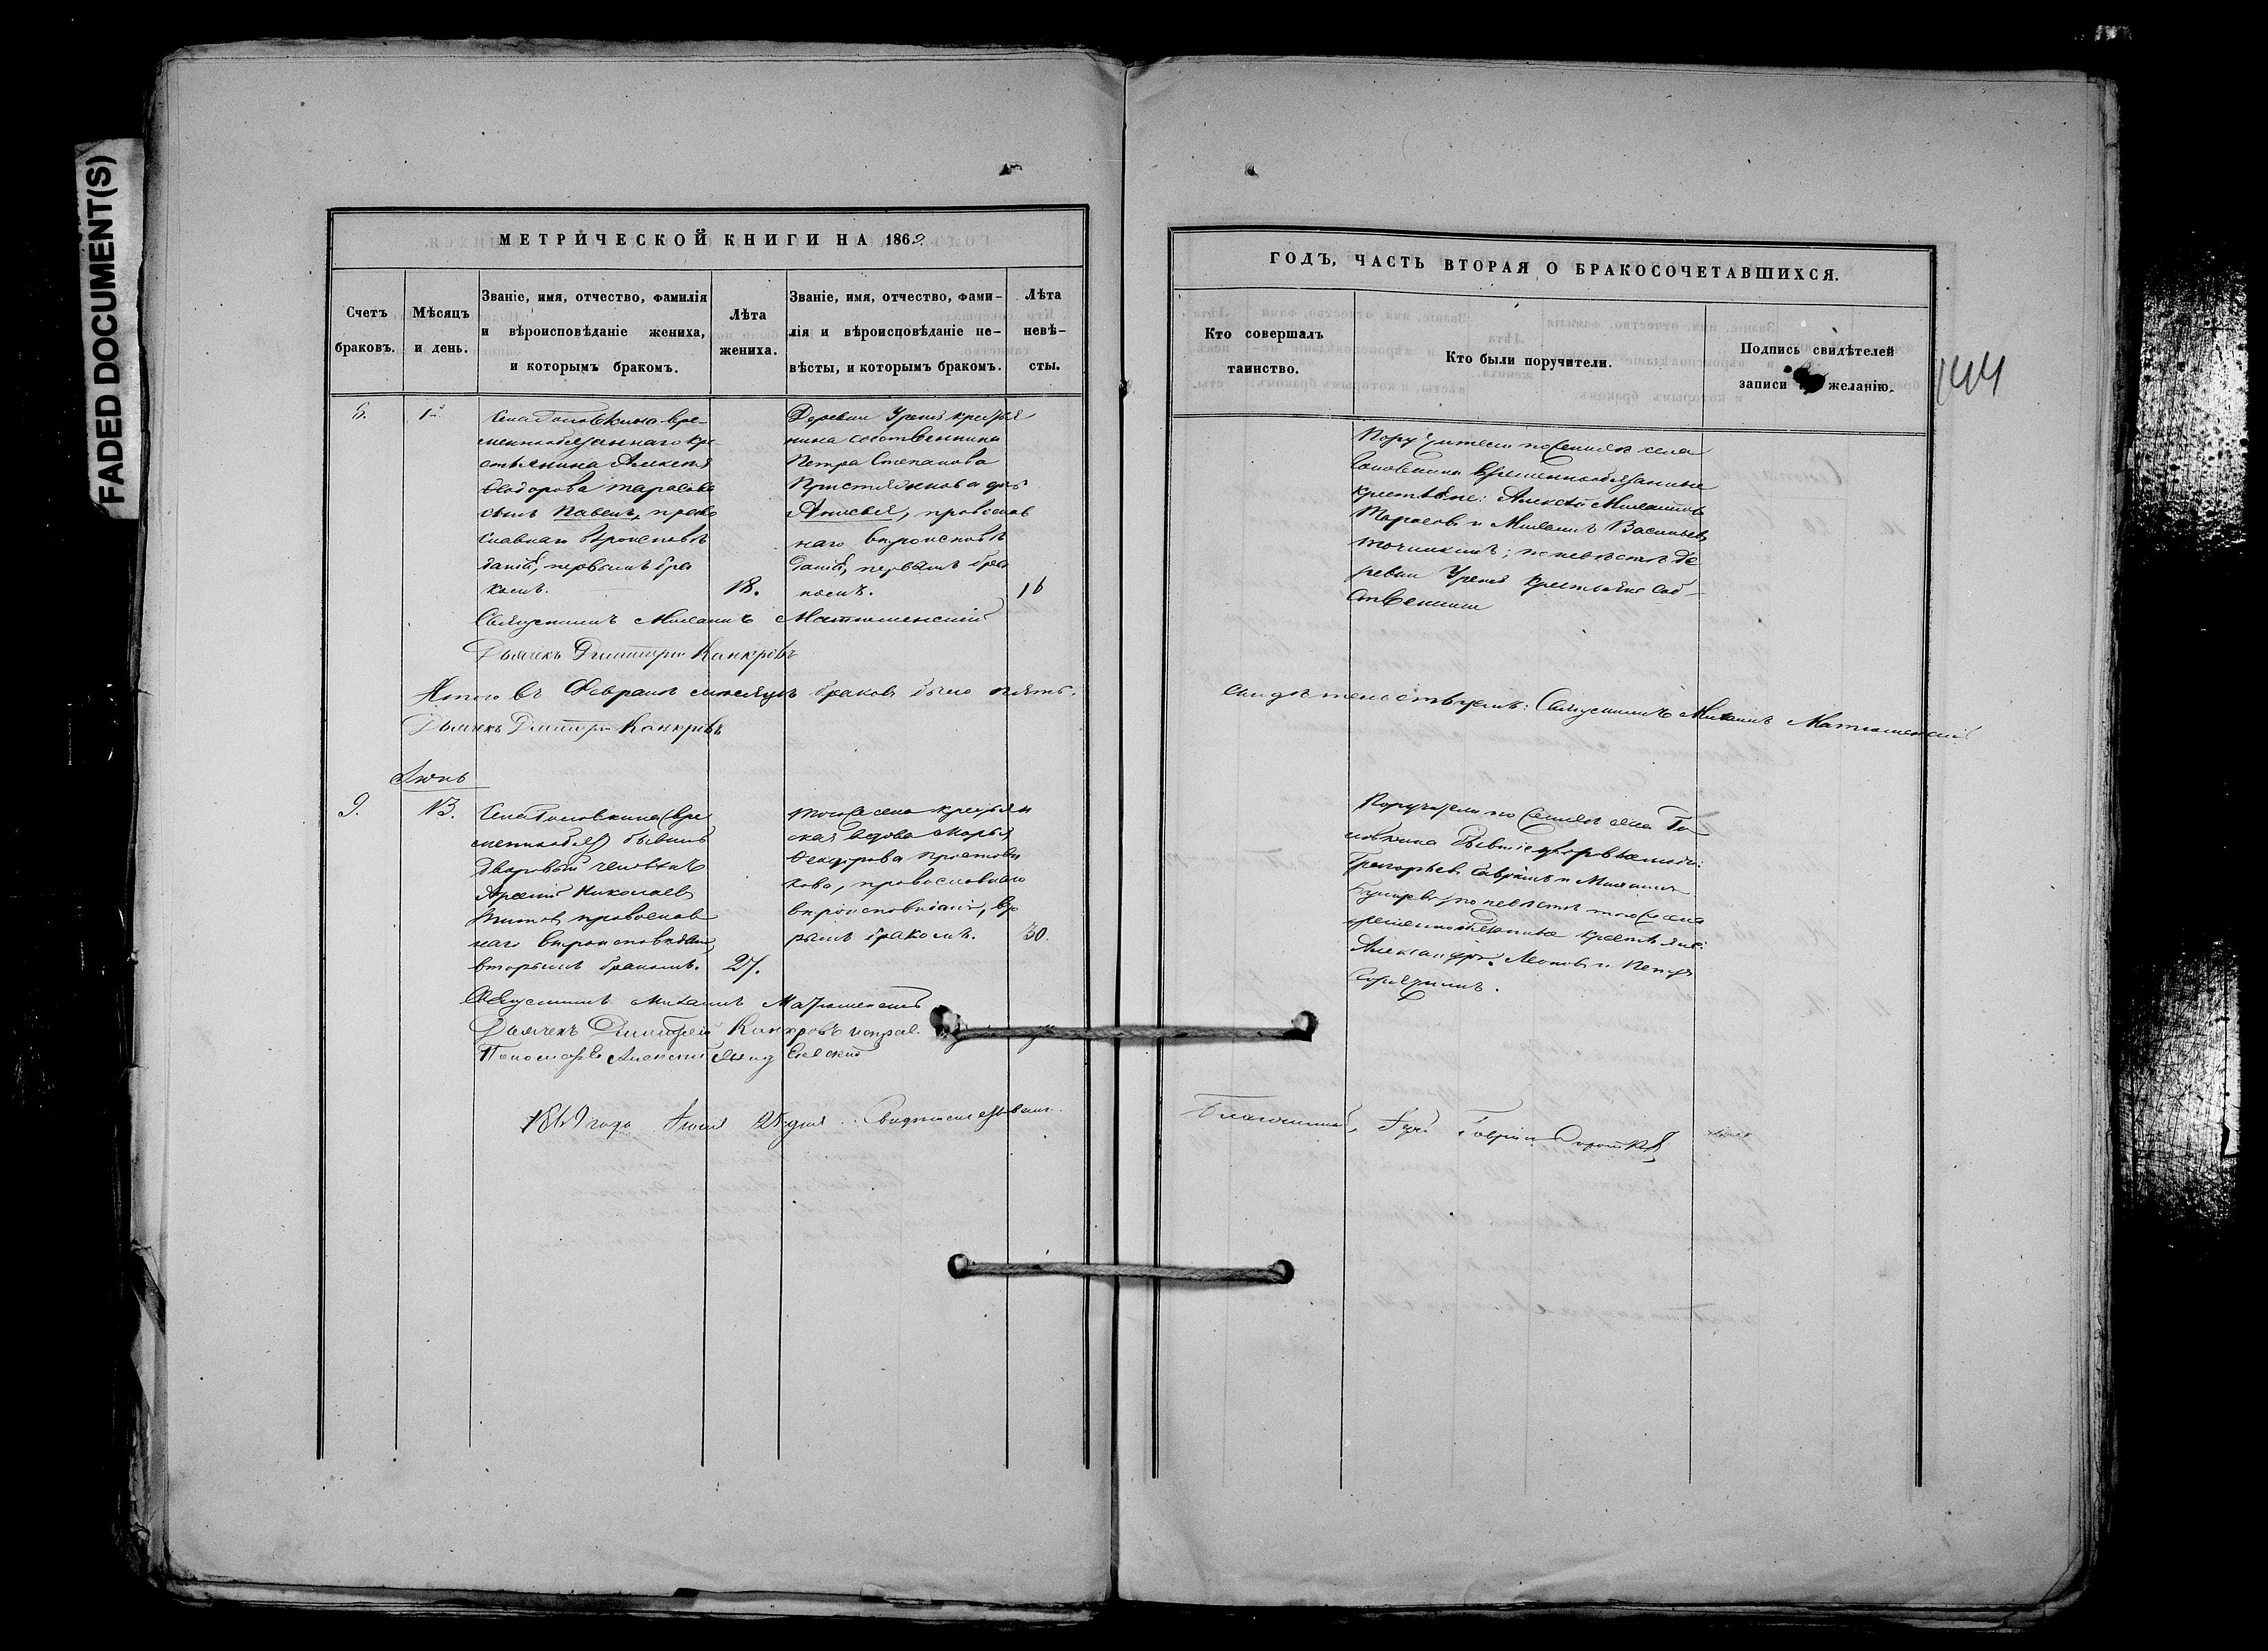 FADED DOCUMENT(S)
МЕТРИЧЕСКОЙ КНИГИ НА 1869
Счетъ браковъ.
Мѣсяцъ и день.
Званіе, имя, отчество, фамилія и вѣроисповѣданіе жениха, и которымъ бракомъ.
Лѣта жениха.
Званіе, имя, отчество, фами-
лія и вѣроисповѣданіе не-
вѣсты, и которымъ бракомъ.
Лѣта невѣ-
сты.
села Головкина вре-
меннообязаннаго кре
стьянина Алексѣя
Ѳеодорова Тарасова
сынъ Павелъ, право
славнаго вѣроисповѣ
данія, первымъ бра
комъ.
18.
Деревни Уреня крестья
нина собственника
Петра Степанова
дочь
Анисья, православ
наго вѣроисповѣ
данія, первымъ бра
комъ.
16
Священникъ Михаилъ Матюшенскій
Дьячекъ Димитрій
Итого въ Февралѣ мѣсяцѣ браковъ было пять.
Дьячекъ Димитрій
Іюнь
9.
13.
Села Головкина вре
меннообяз бывшій
дворовый человѣкъ
Николаевъ
Титовъ православ
наго вѣроисповѣданія,
вторымъ бракомъ.
27.
того же села крестьян
ская вдова Марья
Ѳеодорова
православнаго
вѣроисповѣданія, вто
рымъ бракомъ.
30.
Священникъ Михаилъ Матюшенскій
Дьячекъ Димитрій
Пономарь Алексѣй
1869 года Іюля 25 дня Свидѣтельствовалъ
ГОДЪ, ЧАСТЬ ВТОРАЯ О БРАКОСОЧЕТАВШИХСЯ.
Кто совершалъ таинство.
Кто были поручители.
Подпись свидѣтелей записи желанію.
144
Поручители по женихѣ села
Головкина временнообязанные
крестьяне: Алексѣй Михайловъ
Тарасовъ и Михаилъ Васильевъ
по невѣстѣ де
ревни Уреня крестьяне соб-
ственники
свидѣтельствуемъ: Священникъ Михаилъ Матюшенскій
Поручители по женихѣ села Го
ловкина бывшіе дворовые люди:
Григорьевъ и Михаилъ
по невѣстѣ того же села
временнообязанные крестьяне:
Александръ Леоновъ и Петръ
Благочинный, Гавріилъ